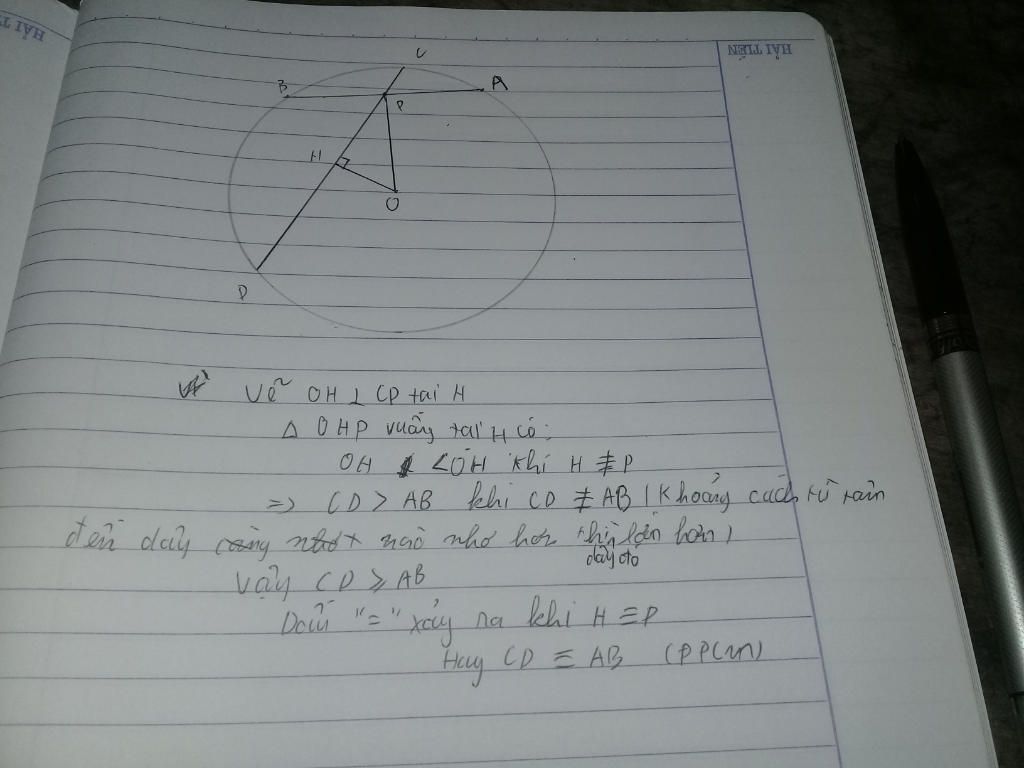 HẢI TIẾN
HẢI TIẾN
C
B
A
P
H
O
D
Vẽ OH ⊥ CD tại H
Δ OHP vuông tại H có:
OH < OH khi H ≢ P
=> CD > AB khi CD ≢ AB (Khoảng cách từ tâm
đến dây nào nhỏ hơn thì lớn hơn)
dây đó
Vậy CD ≥ AB
Dấu "=" xảy ra khi H ≡ P
Hay CD ≡ AB (ĐPCM)